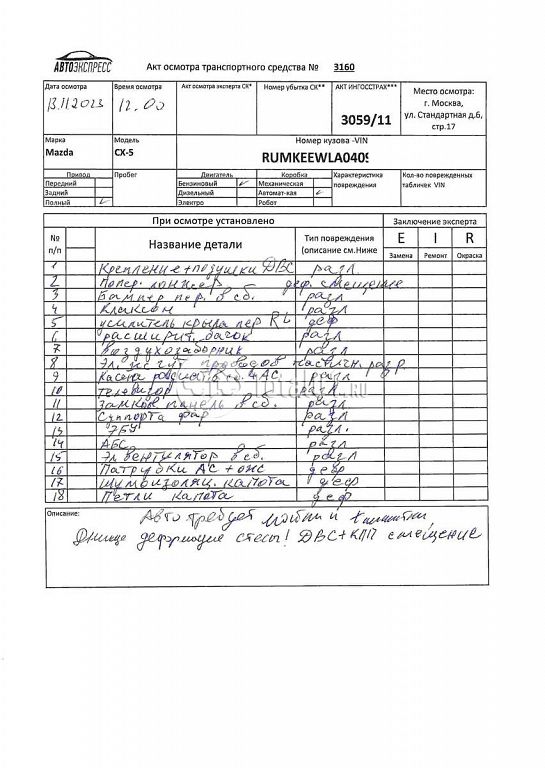 АВТОЭКСПРЕСС
Акт осмотра транспортного средства № 3160
Дата осмотра
13.11 2023
Время осмотра
12.00
Акт осмотра эксперта СК*
Номер убытка СК**
АКТ ИНГОССТРАХ***
3059/11
Место осмотра:
г. Москва,
ул. Стандартная д.6,
стр.17
Марка
Mazda
Модель
CX-5
Номер кузова -VIN
RUMKEEWLA0409
Привод
Передний
Задний
Полный
Пробег
Двигатель
Бензиновый
Дизельный
Электро
Коробка
Механическая
Автомат-кая
Робот
Характеристика
повреждения
Кол-во поврежденных
табличек VIN
При осмотре установлено
Заключение эксперта
№
п/п
Название детали
Тип повреждения
(описание см.Ниже
E I R
Замена Ремонт Окраска
1 Крепление+подушки ДВС разл
2 Попер. лонжер деф. смещение
3 Бампер пер. в сб. разл
4 Клаксон разл
5 усилитель крыла пер RL деф
6 расширит. бачок разл
7 Воздухозаборник разл
8 Эл. жгут проводов частичн. разр.
9 Касета в сб. + АС разл
10 Телевизор разл
11 Замков панель в сб. разл
12 Суппорта фар разл
13 ЭБУ разл.
14 АБС разл
15 Эл вентилятор в сб разл
16 Патрубки АС + ожс деф
17 шумоизоляц. капота деф
18 Петли капота деф
Описание:
Авто требует мойки и
Днище дефрмация стесы! ДВС+КПП смещение